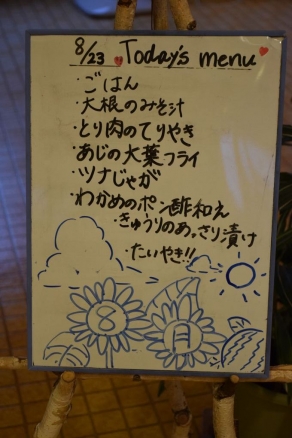 8/23 Today's menu
・ごはん
・大根のみそ汁
・とり肉のてりやき
・あじの大葉フライ
・ツナじゃが
・わかめのポン酢和え
・きゅうりのあっさり漬け
・たいやき!!
8月